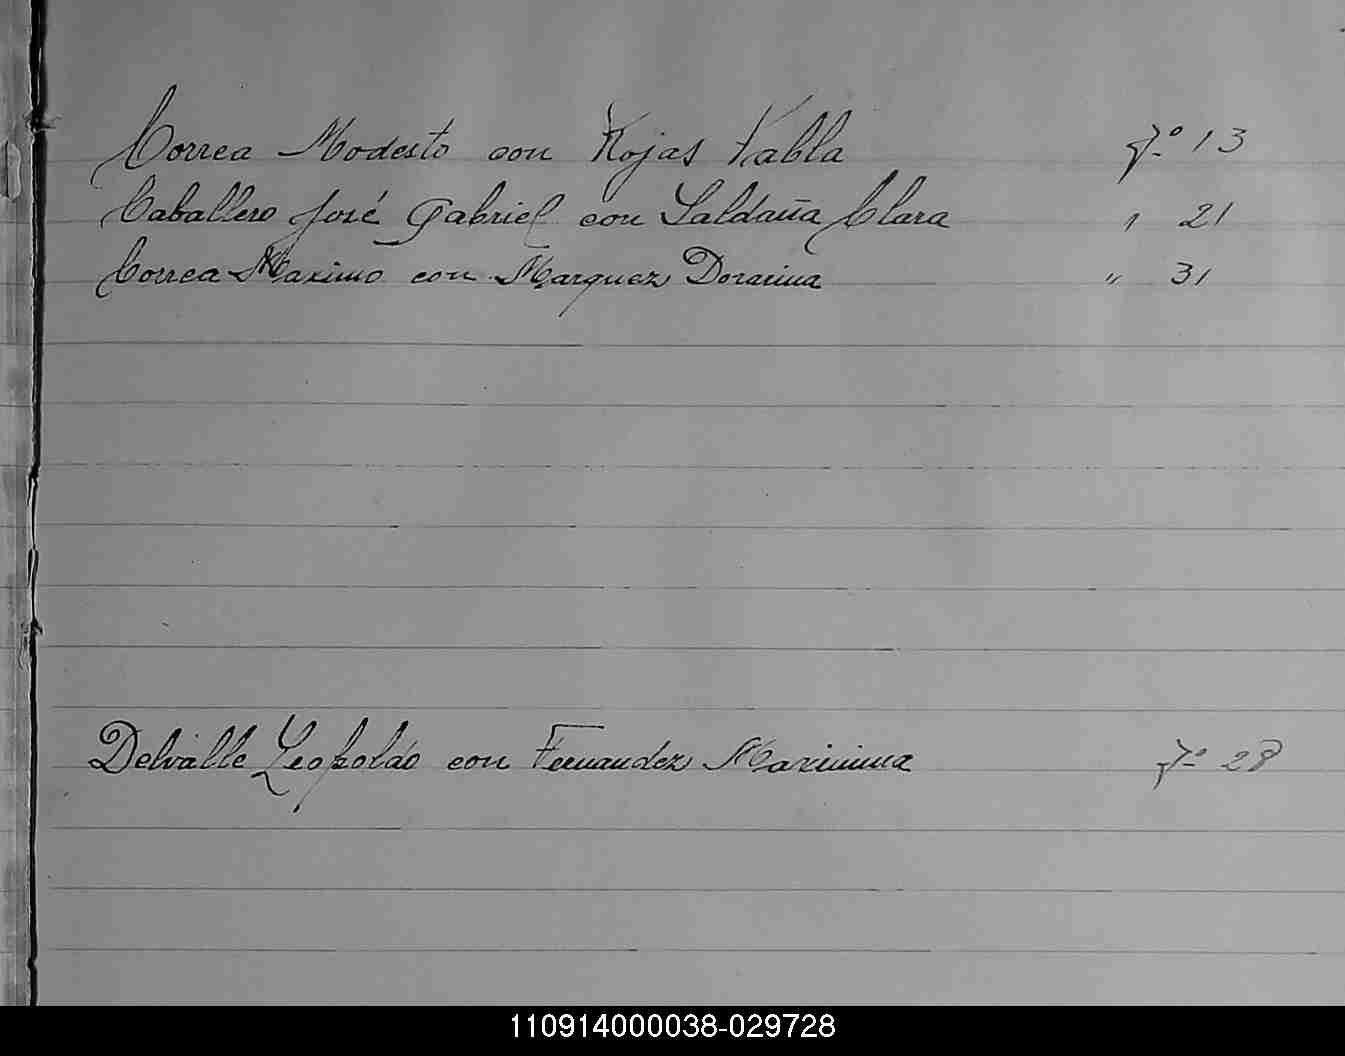 Correa Modesto con Rojas Pabla Fº 13
Caballero José Gabriel con Saldaña Clara " 21
Correa Maximo con Marquez Doraina " 31
Delvalle Leopoldo con Fernandez Maximina Fº 28
110914000038-029728